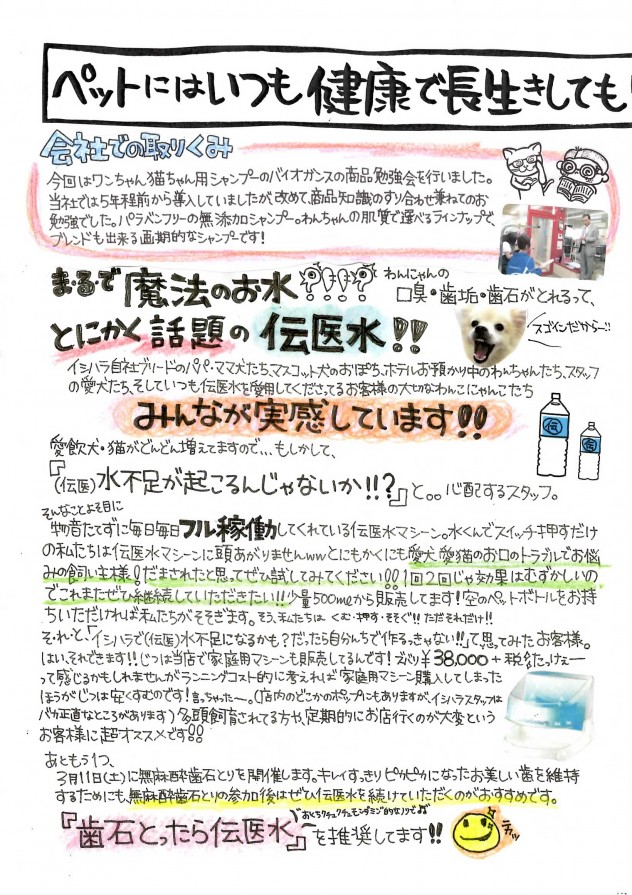 ペットにはいつも健康で長生きしても
会社での取りくみ
今回はワンちゃん猫ちゃん用シャンプーのバイオガンスの商品勉強会を行いました。
当社では5年程前から導入していましたが、改めて、商品知識のすり合わせ兼ねてのお
勉強でした。パラベンフリーの無添加シャンプー。わんちゃんの肌質で選べるラインナップで、
ブレンドも出来る画期的なシャンプーです!
まるで魔法のお水!?!?!?
わんにゃんの
口臭・歯垢・歯石がとれるって、
とにかく話題の伝医水!!
スゴインだから〜!!
イシハラ自社ブリードのパパ・ママ犬たち、マスコット犬のおぽち、ホテルお預かり中のわんちゃんたち、スタッフ
の愛犬たち、そしていつも伝医水を愛用してくださってるお客様の大切なわんこにゃんこたち
みんなが実感しています!!
愛飲犬・猫がどんどん増えてますので、、、もしかして、
『(伝医)水不足が起こるんじゃないか!!?』と。。心配するスタッフ。
伝
伝
そんなことよそ目に
物音たてずに毎日毎日フル稼働してくれている伝医水マシーン。水くんでスイッチ押すだけ
の私たちは伝医水マシーンに頭あがりませんwwとにもかくにも愛犬、愛猫のお口のトラブルでお悩
みの飼い主様!だまされたと思ってぜひ試してみてください!!1回2回じゃ効果はむずかしいの
でこれまたぜひ継続していただきたい!!少量500mlから販売してます!空のペットボトルをお持
ちいただければ私たちがそそぎます。そう、私たちは くむ・押す・そそぐ!!ただそれだけ!!
それいと、「イシハラで(伝医)水不足になるかも?だったら自分んちで作るっきゃない!!」て思ってみたお客様。
はい、それできます!!じつは当店で家庭用マシーンも販売してるんです!ズバリ¥38,000+税!たっけぇー
って感じるかもしれませんがランニングコスト的に考えれば家庭用マシーン購入してしまった
ほうがじつは安くすむのです!言っちゃったー。(店内のどこかのポップにもありますが、イシハラスタッフは
バカ正直なところがあります)多頭飼育されてる方や、定期的にお店行くのが大変という
お客様に超オススメです!!
あともう1つ、
3月11日(土)に無麻酔歯石とりを開催します。キレイすっきりピカピカになったお美しい歯を維持
するためにも、無麻酔歯石とりの参加後はぜひ伝医水を続けていただくのがおすすめです。
おくちクチュクチュモンダミン的なノリで♫
『歯石とったら伝医水』を推奨してます!!